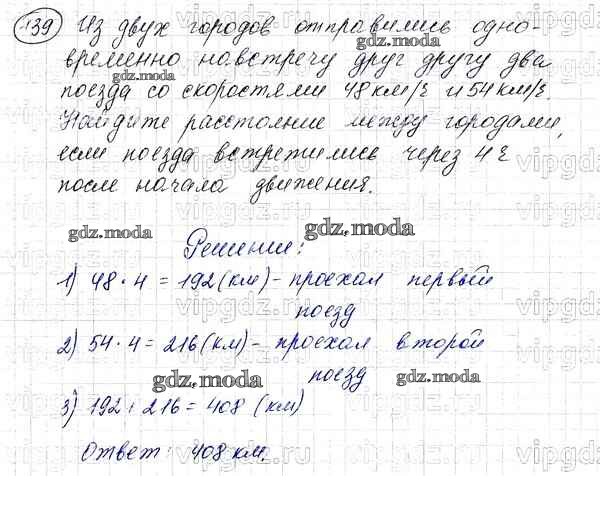 139 Из двух городов отправились одно-
временно навстречу друг другу два
поезда со скоростями 48 км/ч и 54 км/ч.
Найдите расстояние между городами,
если поезда встретились через 4 ч
после начала движения.
Решение:
1) 48 · 4 = 192 (км) - проехал первый
поезд
2) 54 · 4 = 216 (км) - проехал второй
поезд
3) 192 + 216 = 408 (км)
Ответ: 408 км.
gdz.moda
gdz.moda
gdz.moda
gdz.moda
gdz.moda
gdz.moda
vipgdz.ru